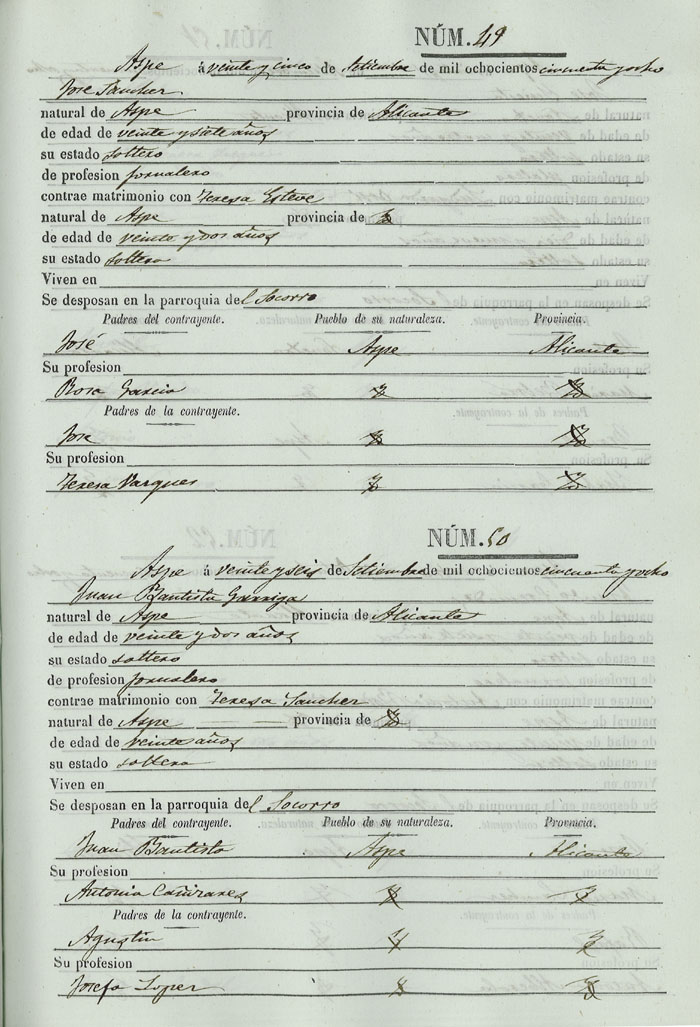 NÚM. 49
Aspe á veinte y cinco de Setiembre de mil ochocientos cincuenta y ocho
Jose Sancher
natural de Aspe provincia de Alicante
de edad de veinte y siete años
su estado soltero
de profesion jornalero
contrae matrimonio con Teresa Esteve
natural de Aspe provincia de
de edad de veinte y dos años
su estado soltera
Viven en
Se desposan en la parroquia del Socorro
Padres del contrayente. Pueblo de su naturaleza. Provincia.
José Aspe Alicante
Su profesion
Rosa Garcia
Padres de la contrayente.
Jose
Su profesion
Teresa Varques
NÚM. 50
Aspe á veinte y seis de Setiembre de mil ochocientos cincuenta y ocho
Juan Bautista Garriga
natural de Aspe provincia de Alicante
de edad de veinte y dos años
su estado soltero
de profesion jornalero
contrae matrimonio con Teresa Sancher
natural de Aspe provincia de
de edad de veinte años
su estado soltera
Viven en
Se desposan en la parroquia del Socorro
Padres del contrayente. Pueblo de su naturaleza. Provincia.
Juan Bautista Aspe Alicante
Su profesion
Antonia Cañizares
Padres de la contrayente.
Agustin
Su profesion
Josefa Loper